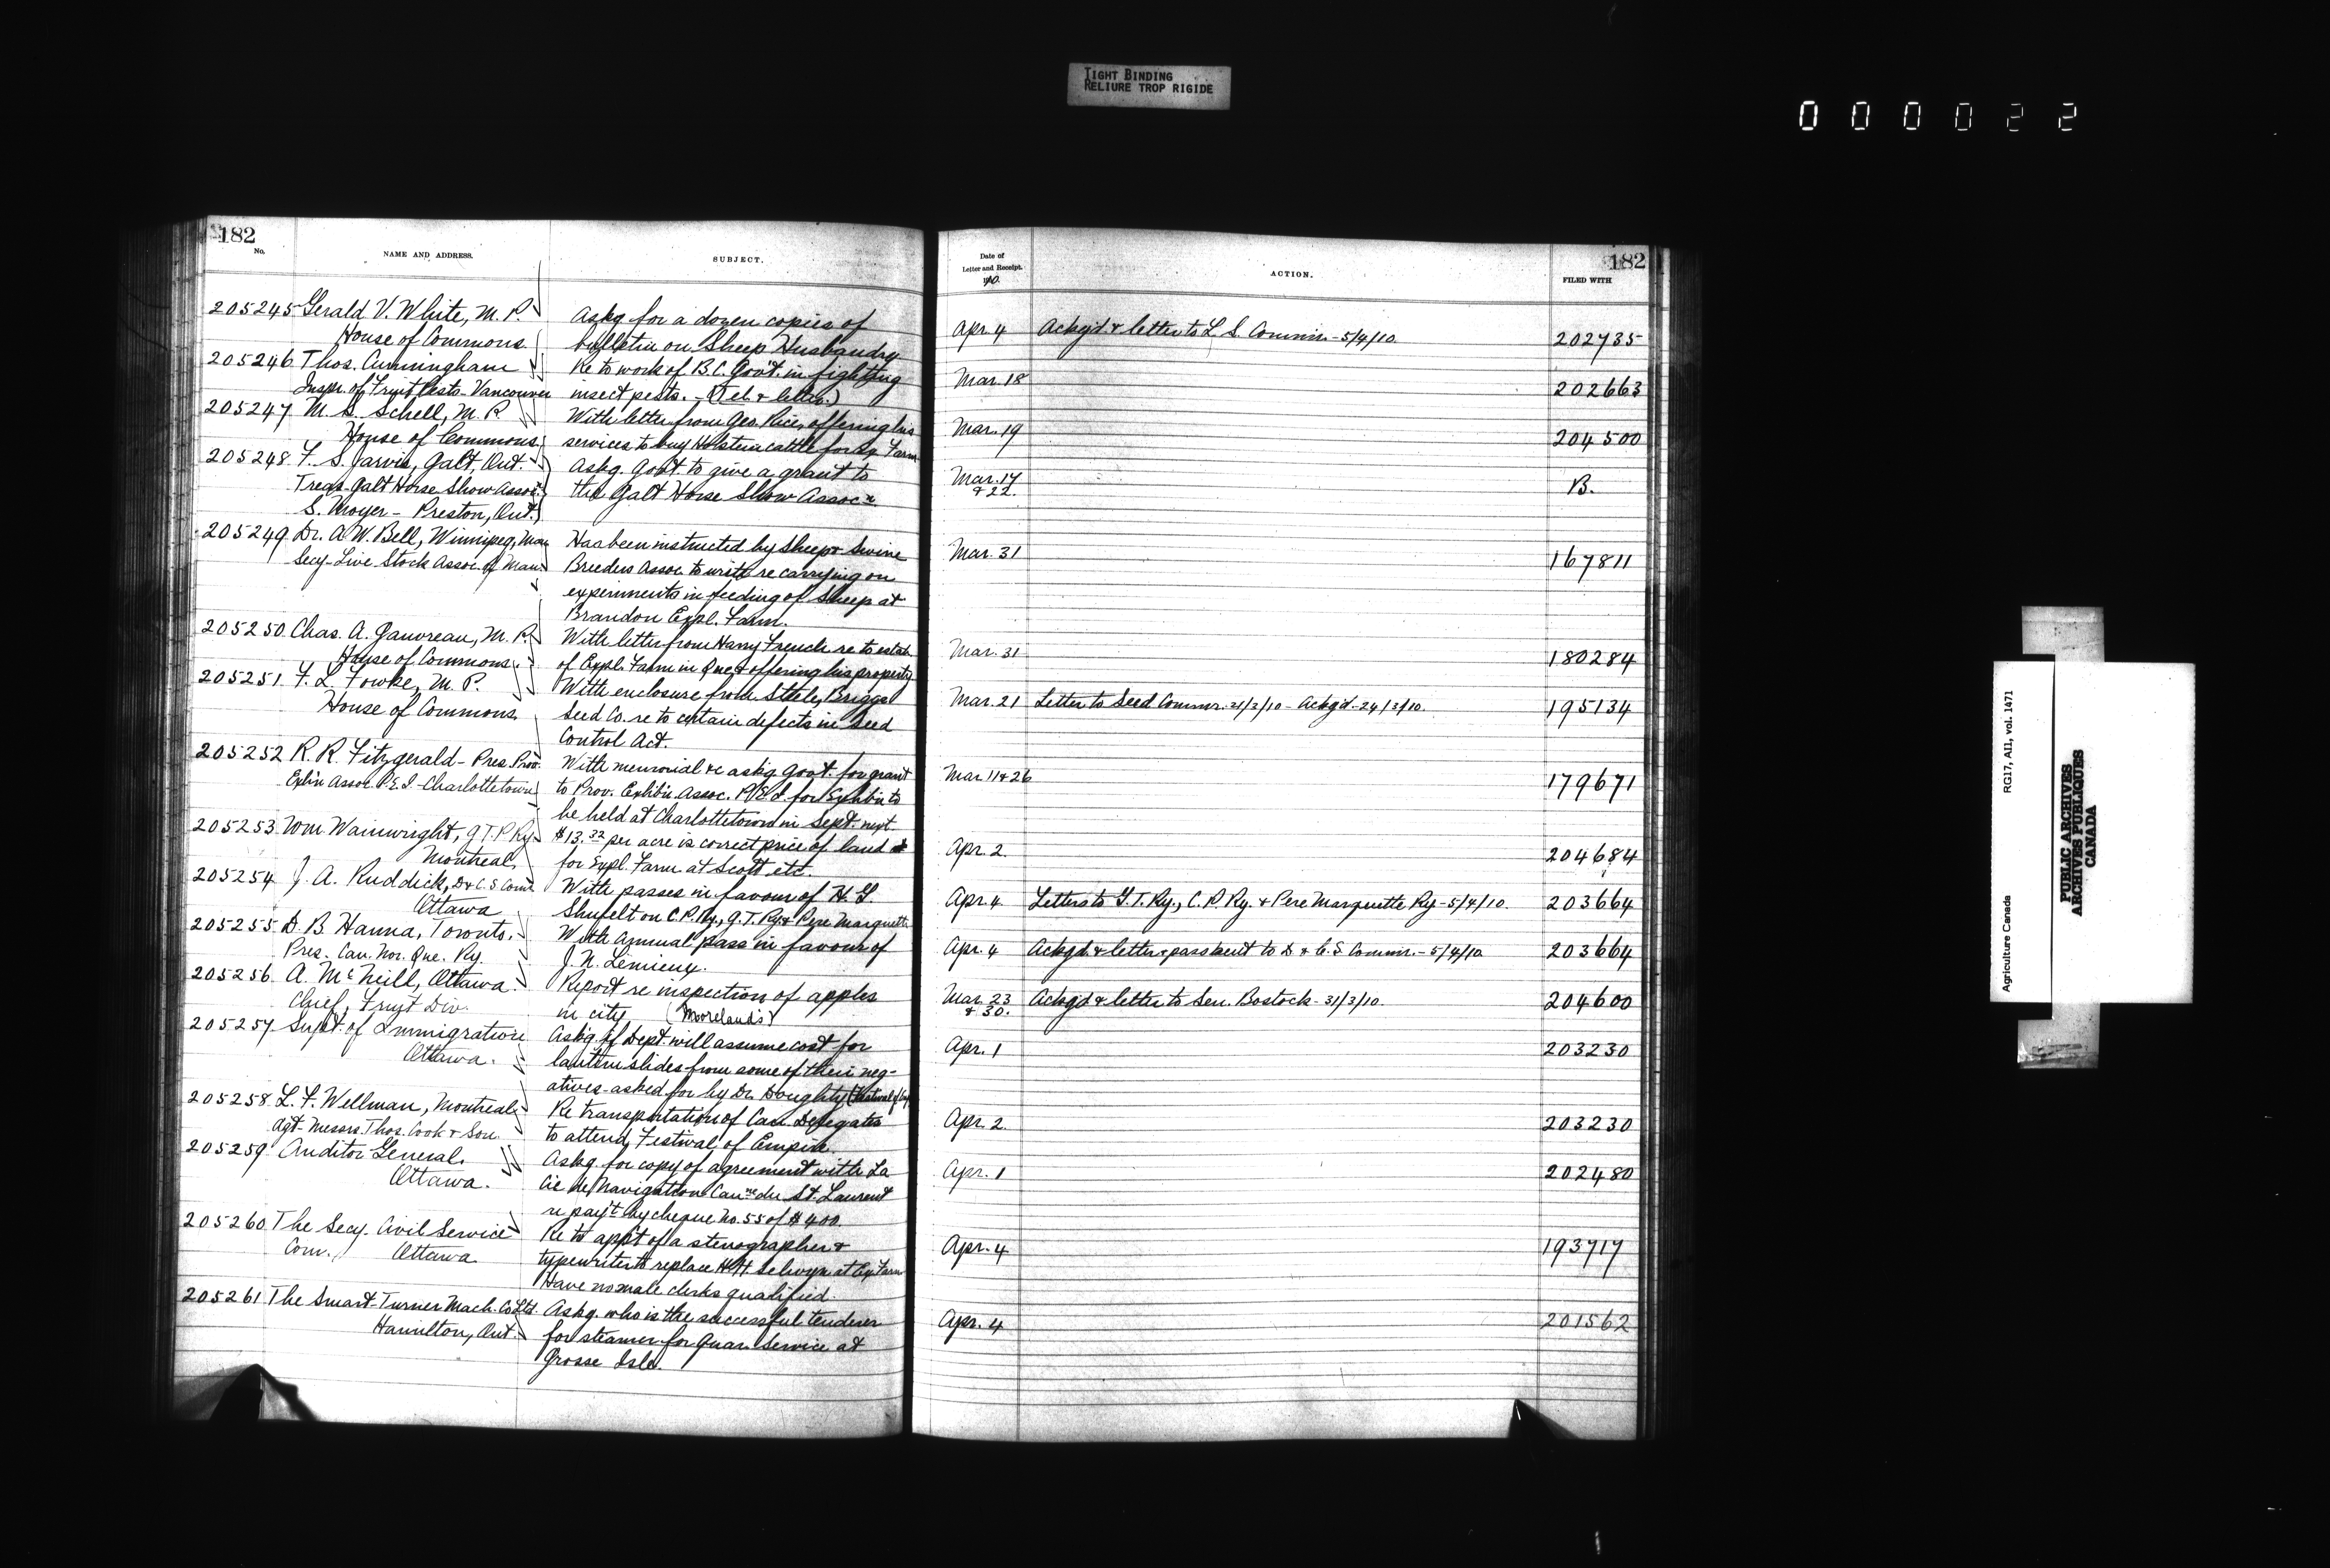 TIGHT BINDING
RELIURE TROP RIGIDE
000022
182
No.
NAME AND ADDRESS.
SUBJECT.
205245 Gerald V. White, M.P.
House of Commons
Askg for a dozen copies of
bulletin on Sheep Husbandry
205246 Thos. Cunningham
Inspr. of Fruit Pests - Vancouver
Re to work of B.C. Gov't. in fighting
insect pests. - (Tel. & letter.)
205247 M. S. Schell, M.P.
House of Commons
With letter from Geo. Rice, offering his
services to buy Holstein cattle for Ex. Farm
205248 F. S. Jarvis, Galt, Ont.
Treas. Galt Horse Show Assoc.
S. Moyer - Preston, Ont.
Askg. Govt. to give a grant to
the Galt Horse Show Assocn.
205249 Dr. A. W. Bell, Winnipeg, Man
Secy. Live Stock Assoc. of Man.
Has been instructed by Sheep & Swine
Breeders Assoc. to write re carrying on
experiments in feeding of Sheep at
Brandon Expl. Farm.
205250 Chas. A. Gauvreau, M.P.
House of Commons
With letter from Harry French re to estab.
of Expl. Farm in Que. & offering his property
205251 F. L. Fowke, M.P.
House of Commons
With enclosure from Steele, Briggs
Seed Co. re to certain defects in Seed
Control Act.
205252 R. R. Fitzgerald - Pres. Prov.
Exhi'n Assoc. P.E.I. - Charlottetown
With memorial &c askg Govt. for grant
to Prov. Exhib'n Assoc. P.E.I. for Exhib'n to
be held at Charlottetown in Sept. next.
205253 Wm Wainwright, G.T.P. Ry.
Montreal.
$13.32 per acre is correct price of land
for Expl. Farm at Scott etc.
205254 J. A. Ruddick, D & C.S. Comr.
Ottawa
With passes in favour of H. G.
Shufelt on C.P. Ry., G.T. Ry & Pere Marquette
205255 D. B. Hanna, Toronto.
Pres. Can. Nor. Que. Ry.
With annual pass in favour of
J. N. Lemieux.
205256 A. McNeill, Ottawa.
Chief, Fruit Div.
Report re inspection of apples
in city (Moreland's)
205257 Supt. of Immigration
Ottawa.
Ask'g if Dept. will assume cost for
lantern slides from some of their neg-
atives - asked for by Dr. Doughty (Festival of Emp.
205258 L. F. Wellman, Montreal
Agt. Messrs. Thos. Cook & Son.
Re transportation of Can. Delegates
to attend Festival of Empire.
205259 Auditor General.
Ottawa.
Askg. for copy of agreement with La
Cie de Navigation Canne du St. Laurent
re payt. by cheque No. 55 of $400.
205260 The Secy. Civil Service
Com. Ottawa
Re to app't of a stenographer &
typewriter to replace H. H. Selwyn at Ex. Farm
Have no male clerks qualified.
205261 The Smart-Turner Mach. Co. Ltd.
Hamilton, Ont.
Askg. who is the successful tenderer
for steamer for Quar. Service at
Grosse Isle.
182
Date of
Letter and Receipt.
1910.
ACTION.
FILED WITH
Apr. 4 Ackg'd & letter to L. S. Commr. - 5/4/10. 202735
Mar. 18 202663
Mar. 19 204500
Mar. 17
& 22. B.
Mar. 31 167811
Mar. 31 180284
Mar. 21 Letter to Seed Commr. 21/3/10 - Ackg'd - 24/3/10. 195134
Mar 11 & 26 179671
Apr. 2. 204684
Apr. 4 Letters to G.T. Ry., C.P. Ry. & Pere Marquette Ry - 5/4/10. 203664
Apr. 4 Ackg'd. & letter & pass sent to D. & C.S. Commr. - 5/4/10 203664
Mar. 23
& 30. Ackg'd & letter to Sen. Bostock - 31/3/10. 204600
Apr. 1 203230
Apr. 2 203230
Apr. 1 202480
Apr. 4 193717
Apr. 4 201562
Agriculture Canada RG17, AII, vol. 1471
PUBLIC ARCHIVES
ARCHIVES PUBLIQUES
CANADA